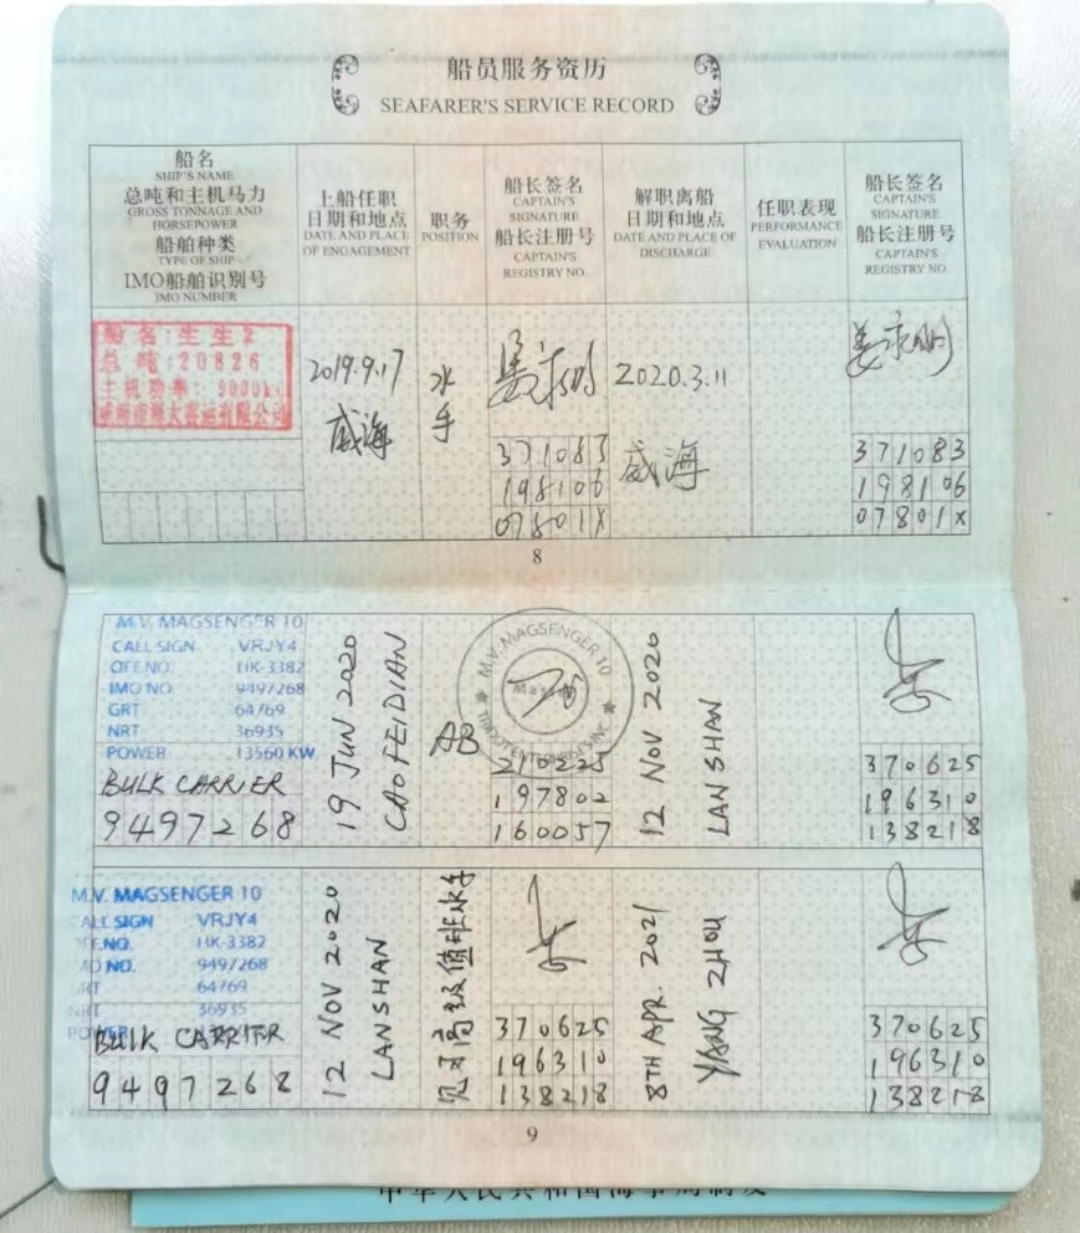 船员服务资历
SEAFARER'S SERVICE RECORD
船名
SHIP'S NAME
总吨和主机马力
GROSS TONNAGE AND
HORSEPOWER
船舶种类
TYPE OF SHIP
IMO船舶识别号
IMO NUMBER
上船任职
日期和地点
DATE AND PLACE
OF ENGAGEMENT
职务
POSITION
船长签名
CAPTAIN'S
SIGNATURE
船长注册号
CAPTAIN'S
REGISTRY NO.
解职离船
日期和地点
DATE AND PLACE OF
DISCHARGE
任职表现
PERFORMANCE
EVALUATION
船长签名
CAPTAIN'S
SIGNATURE
船长注册号
CAPTAIN'S
REGISTRY NO.
船名:生生2
总吨:20826
主机功率:9000k
2019.9.17
威海
水
手
371083
198106
07801X
2020.3.11
威海
371083
198106
07801X
8
M.V. MAGSENGER 10
CALL SIGN VRJY4
OFF.NO. HK-3382
IMO NO. 9497268
GRT 64769
NRT 36935
POWER 13560 KW
BULK CARRIER
9497268
19 JUN 2020
CAOFEIDIAN
AB
M.V. MAGSENGER 10
Master
210225
197802
160057
12 NOV 2020
LANSHAN
370625
196310
138218
M.V. MAGSENGER 10
CALL SIGN VRJY4
OFF.NO. HK-3382
NO. 9497268
RT 64769
NRT 36935
POWER
BULK CARRIER
9497268
12 NOV 2020
LANSHAN
见习高级值班水手
370625
196310
138218
8TH APR. 2021
YANG ZHOU
370625
196310
138218
9
中华人民共和国海事局制发